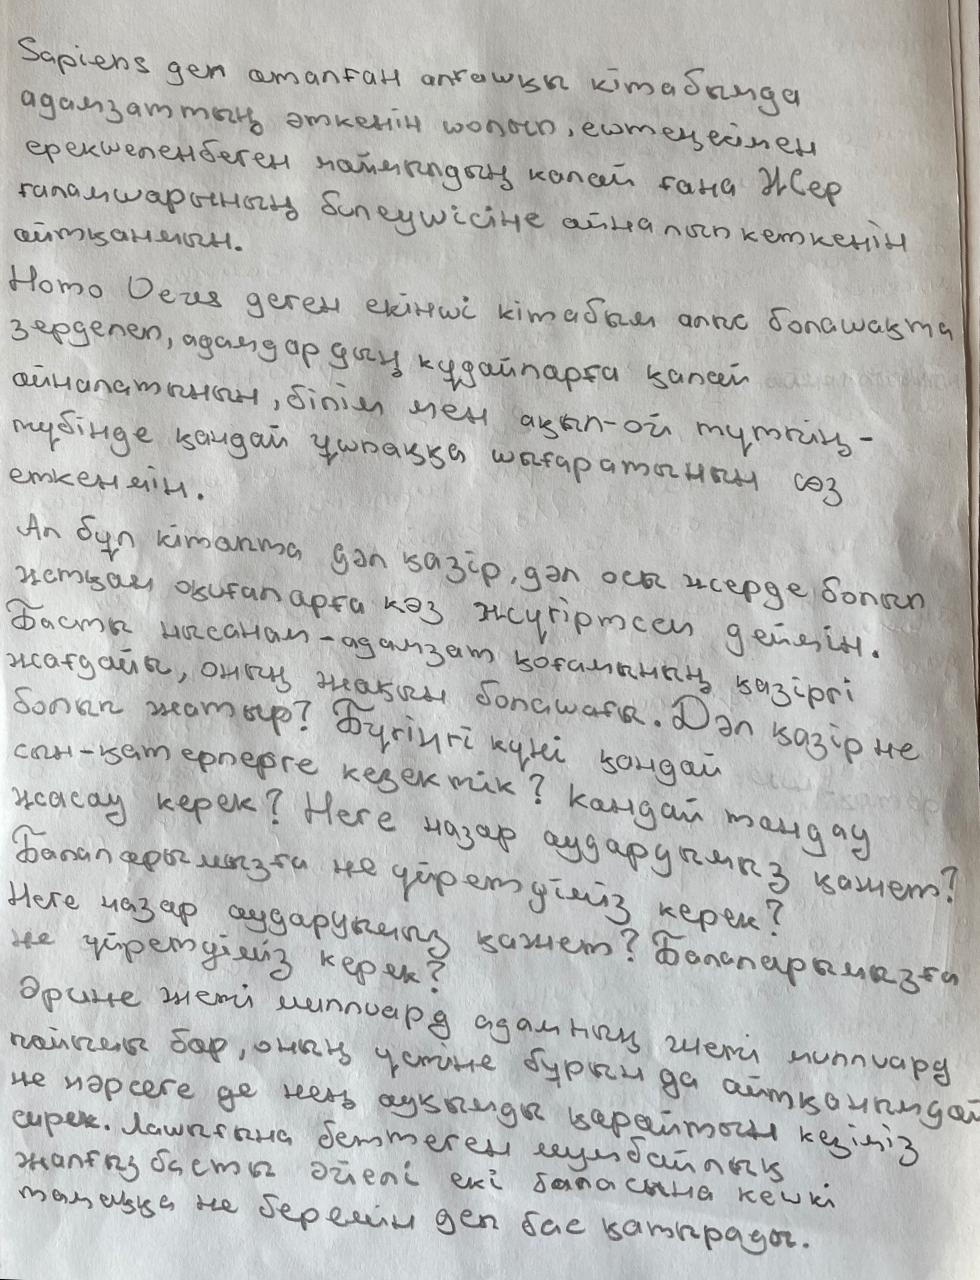 Sapiens деп аталған алғашқы кітабымда
адамзаттың өткенін шолып, ештеңесімен
ерекшеленбеген маймылдың қалай ғана Жер
ғаламшарының билеушісіне айналып кеткенін
айтқанмын.
Homo Deus деген екінші кітабым алыс болашақта
зерделеп, адамдардың құдайларға қалай
айналатынын, білім мен ақыл-ой түптің-
түбінде қандай ұшпаққа шығаратынын сөз
еткенмін.
Ал бұл кітапта дәл қазір, дәл осы жерде болып
жатқан оқиғаларға көз жүгіртсем деймін.
Басты нысанам-адамзат қоғамының қазіргі
жағдайы, оның жақын болашағы. Дәл қазір не
болып жатыр? Бүгінгі күні қандай
сын-қатерлерге кезектік? Қандай таңдау
жасау керек? Неге назар аударуымыз қажет?
Балаларымызға не үйретуіміз керек?
Неге назар аударуымыз қажет? Балаларымызға
не үйретуіміз керек?
Әрине жеті миллиард адамның жеті миллиард
пайымы бар, оның үстіне бұрын да айтқанымдай
не нәрсеге де кең ауқымды қарайтын кезіміз
сирек. Лашығына беттеген мумбайлық
жалғыз басты әйелі екі баласына кешкі
тамаққа не беремін деп бас қатырады.